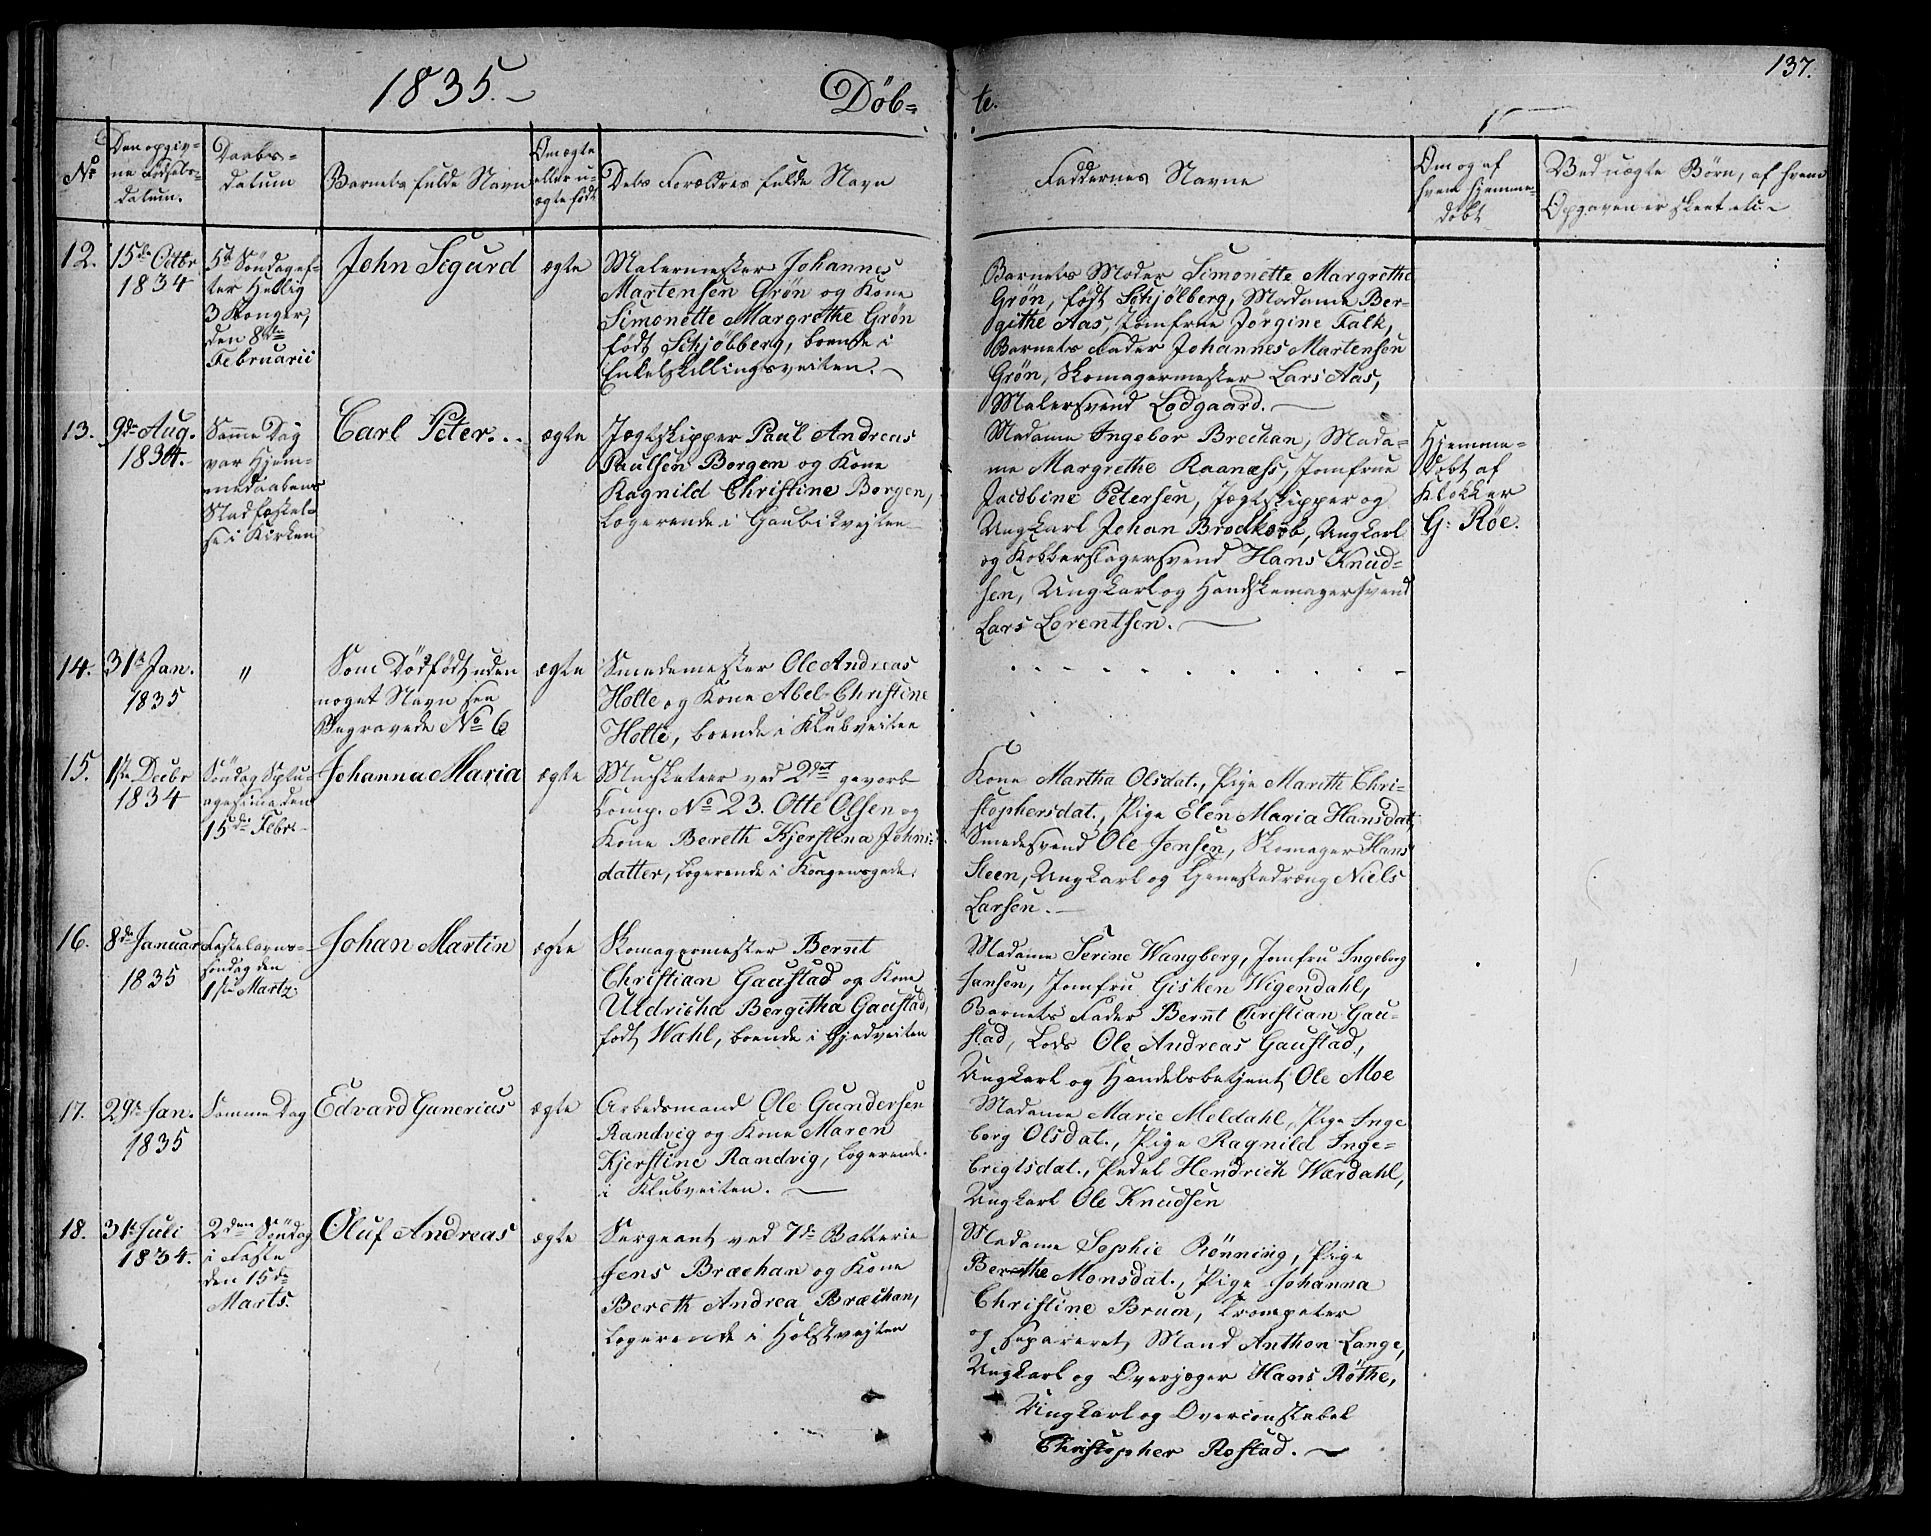 1835.
Døb=
te.
137.
No
Den opgiv-
ne Fødsels-
datum.
Daabs-
datum
Barnets fulde Navn
Om ægte
eller u-
ægte født
Dets Forældres fulde Navn
Faddernes Navne
Om og af
hvem hjemme-
døbt
Ved uægte Børn, af hvem
Opgaven er skeet etc.
12.
15de Octbr
1834
5te Søndag ef-
ter Hellig
3 Konger,
den 8de
Februarii
John Sigurd
ægte
Malermester Johannes
Martensen Grøn og Kone
Simonette Margrethe Grøn
født Schjøbberg, boende i
Enkelskillingsveiten.
Barnets Moder Simonette Margrethe
Grøn, født Schjølberg, Madame Ber-
githe Aas, Jomfrue Jørgine Falk,
Barnets Fader Johannes Martensen
Grøn, Skomagermester Lars Aas,
Malersvend Lodgaard.
13.
9de Aug.
1834.
Samme Dag
var Hjem-
medaabens
Stadfæstel-
se i Kirken
Carl Peter.
ægte
Jægtskipper Paul Andreas
Paulsen Borgen og Kone
Ragnild Christine Borgen,
Logerende i Gaubækvejten
Madame Ingebor Brechan, Mada-
me Margrethe Raanæss, Jomfrue
Jacobine Petersen, Jægtskipper og
Ungkarl Johan Brodkorb, Ungkarl
og Kobberslagersvend Hans Knud-
sen, Ungkarl og Handskemagersvend
Lars Lorentsen.
Hjemme-
døbt af
Klokker
G: Røe.
14.
31te Jan.
1835
"
Som Dødfødt uden
noget Navn see
Begravede No 6
ægte
Smedemester Ole Andreas
Holte og Kone Abel Christine
Holte, boende i Klubveiten
15.
1ste Decbr
1834
Søndag Septu-
agesima den
15de Febr.
Johanna Maria
ægte
Muskateer ved 2det gevorb
Comp. No 23. Otte Olsen og
Kone Bereth Kjerstena Johns-
datter, Logerende i Kongensgade.
Kone Martha Olsdat., Pige Marith Chri-
stophersdat., Pige Elen Maria Hansdat,
Smedesvend Ole Jensen, Skomager Hans
Steen, Ungkarl og Tjenestedræng Niels
Larsen.
16.
8de Januar
1835
Fastelavns-
søndag den
1ste Martz
Johan Martin
ægte
Skomagermester Bernt
Christian Gaustad og Kone
Uldricha Bergitha Gaustad,
født Wahl, boende i Gjedveiten
Madame Serine Wangberg, Jomfru Ingeborg
Jansen, Jomfru Gisken Wigendahl,
Barnets Fader Bernt Christian Gau-
stad, Lods Ole Andreas Gaustad,
Ungkarl og Handelsbetjent Ole Moe
17.
29de Jan.
1835
Samme Dag
Edvard Gunerius
ægte
Arbedsmand Ole Gundersen
Randvig og Kone Maren
Kjerstine Randvig, Logerende
i Klubveiten.
Madame Marie Meldahl, Pige Inge
borg Olsdat., Pige Ragnild Inge-
brigtsdat., Pedel Hendrich Wærdahl,
Ungkarl Ole Knudsen
18.
31te Juli
1834.
2den Søndag
i Faste
den 15de
Marts.
Oluf Andreas
ægte
Sergeant ved 7de Batterie
Jens Bræchan og Kone
Bereth Andrea Bræchan,
Logerende i Holstvejten
Madame Sophie Rönning, Pige
Berethe Monsdat., Pige Johanna
Christine Brum, Trompeter
og separeret Mand Anthon Lange,
Ungkarl og Overjæger Hans Røthe,
Ungkarl og Overconstabel
Christopher Rostad.